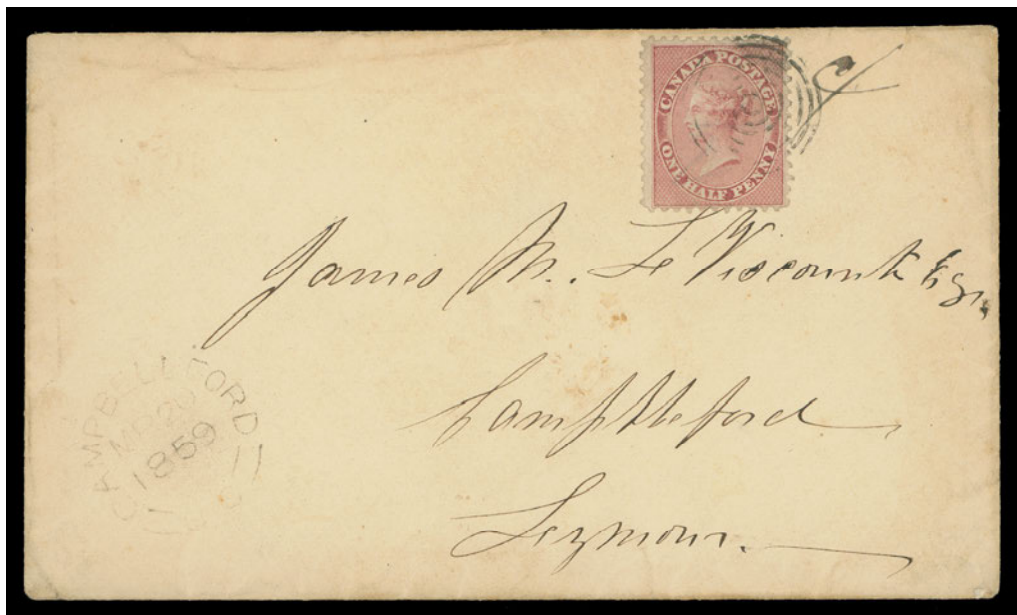 CANADA POSTAGE
ONE HALF PENNY
James M. Le Viscount Esqr.
Camptleford
Seymour.
CAMPBELLFORD
MR 20
1859